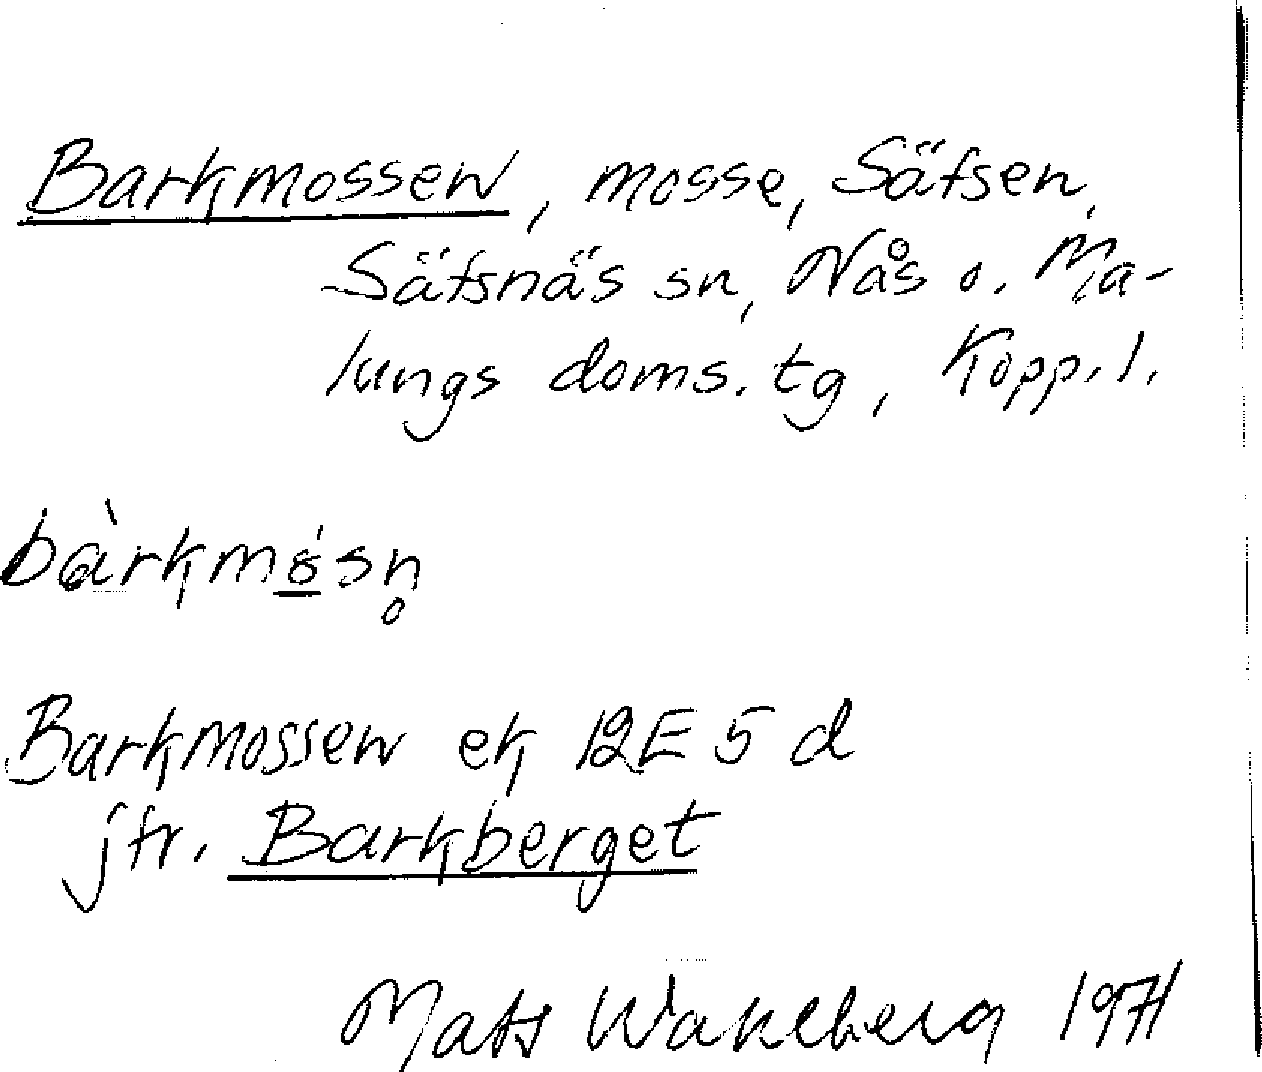 Barkmossen, mosse, Säfsen,
Säfsnäs sn, Nås o. Ma-
lungs doms. tg, Kopp. l.
bàrkmɷ́sn̥
Barkmossen ek 12E 5 d
jfr. Barkberget
Mats Wahlberg 1971